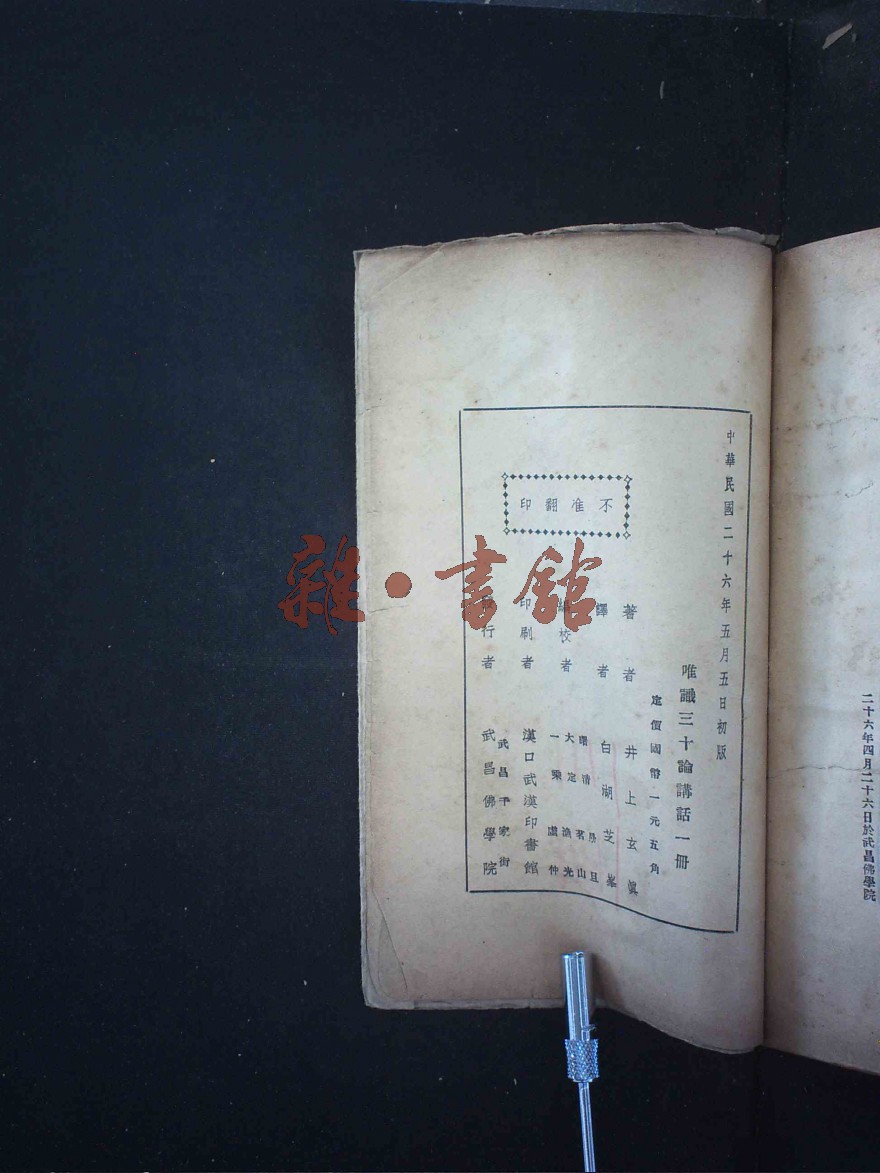 二十六年四月二十六日於武昌佛學院
中華民國二十六年五月五日初版
唯識三十論講話一冊
定價國幣一元五角
著者 井上玄眞
譯者 白湖芝峯
編校者
大定
一乘
印刷者 漢口武漢印書館
發行者 武昌千家街 武昌佛學院
不准翻印
雜·書館